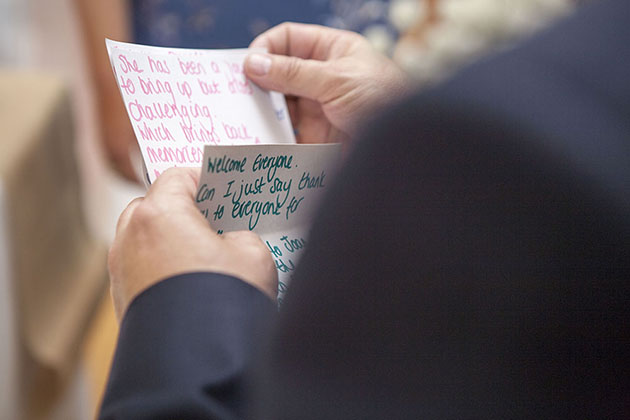 She has been a
to bring up but
Challenging.
Which brings back
memories
Welcome Everyone.
Can I just say thank
to everyone for
to
the